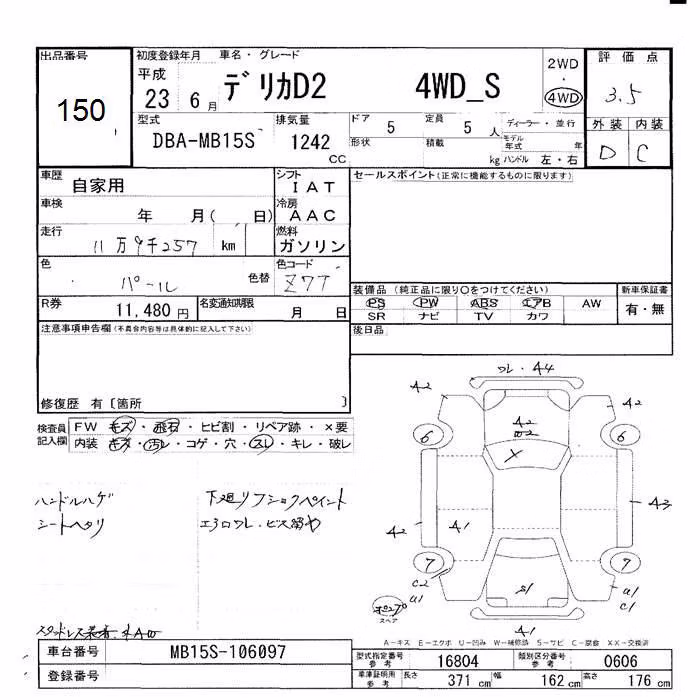 出品番号 初度登録年月 車名・グレード 評価点
150
平成 23 6月 デリカD2 4WD_S
2WD ・ 4WD
3.5
型式 排気量 ドア 5 定員 5 人 ディーラー・並行
DBA-MB15S 1242 CC
形状 積載 kg モデル年式 年 ハンドル 左・右
外装 内装
D C
車歴 自家用 シフト IAT セールスポイント(正常に機能するものに限ります)
車検 年 月( 日) 冷房 AAC
走行 11万9千257 km 燃料 ガソリン
色 パール 色替 色コード Z7T
装備品 (純正品に限り○をつけてください) 新車保証書
PS PW ABS エアB AW 有・無
SR ナビ TV カワ
R券 11,480円 名変通知期限 月 日
後日品
注意事項申告欄(不具合内容等は具体的に記入して下さい)
修復歴 有〔箇所 〕
検査員記入欄 FW キズ・飛石・ヒビ割・リペア跡・×要
内装 キズ・汚レ・コゲ・穴・スレ・キレ・破レ
ハンドルハゲ
シートヘタリ
下廻リフショクペイント
エアロワレ・ビス留や
スタッドレス装着
ワレ・A4
A2 A2
6 6
A2
X
A2 A1 A3
7 7
C2 U1 S1 U1 C1
スペア
A1
A-キズ E-エクボ U-凹み W-補修跡 S-サビ C-腐食 XX-交換済
車台番号 MB15S-106097
登録番号
型式指定番号 参考 16804 類別区分番号 参考 0606
車庫証明用 参考 長さ 371 cm 幅 162 cm 高さ 176 cm